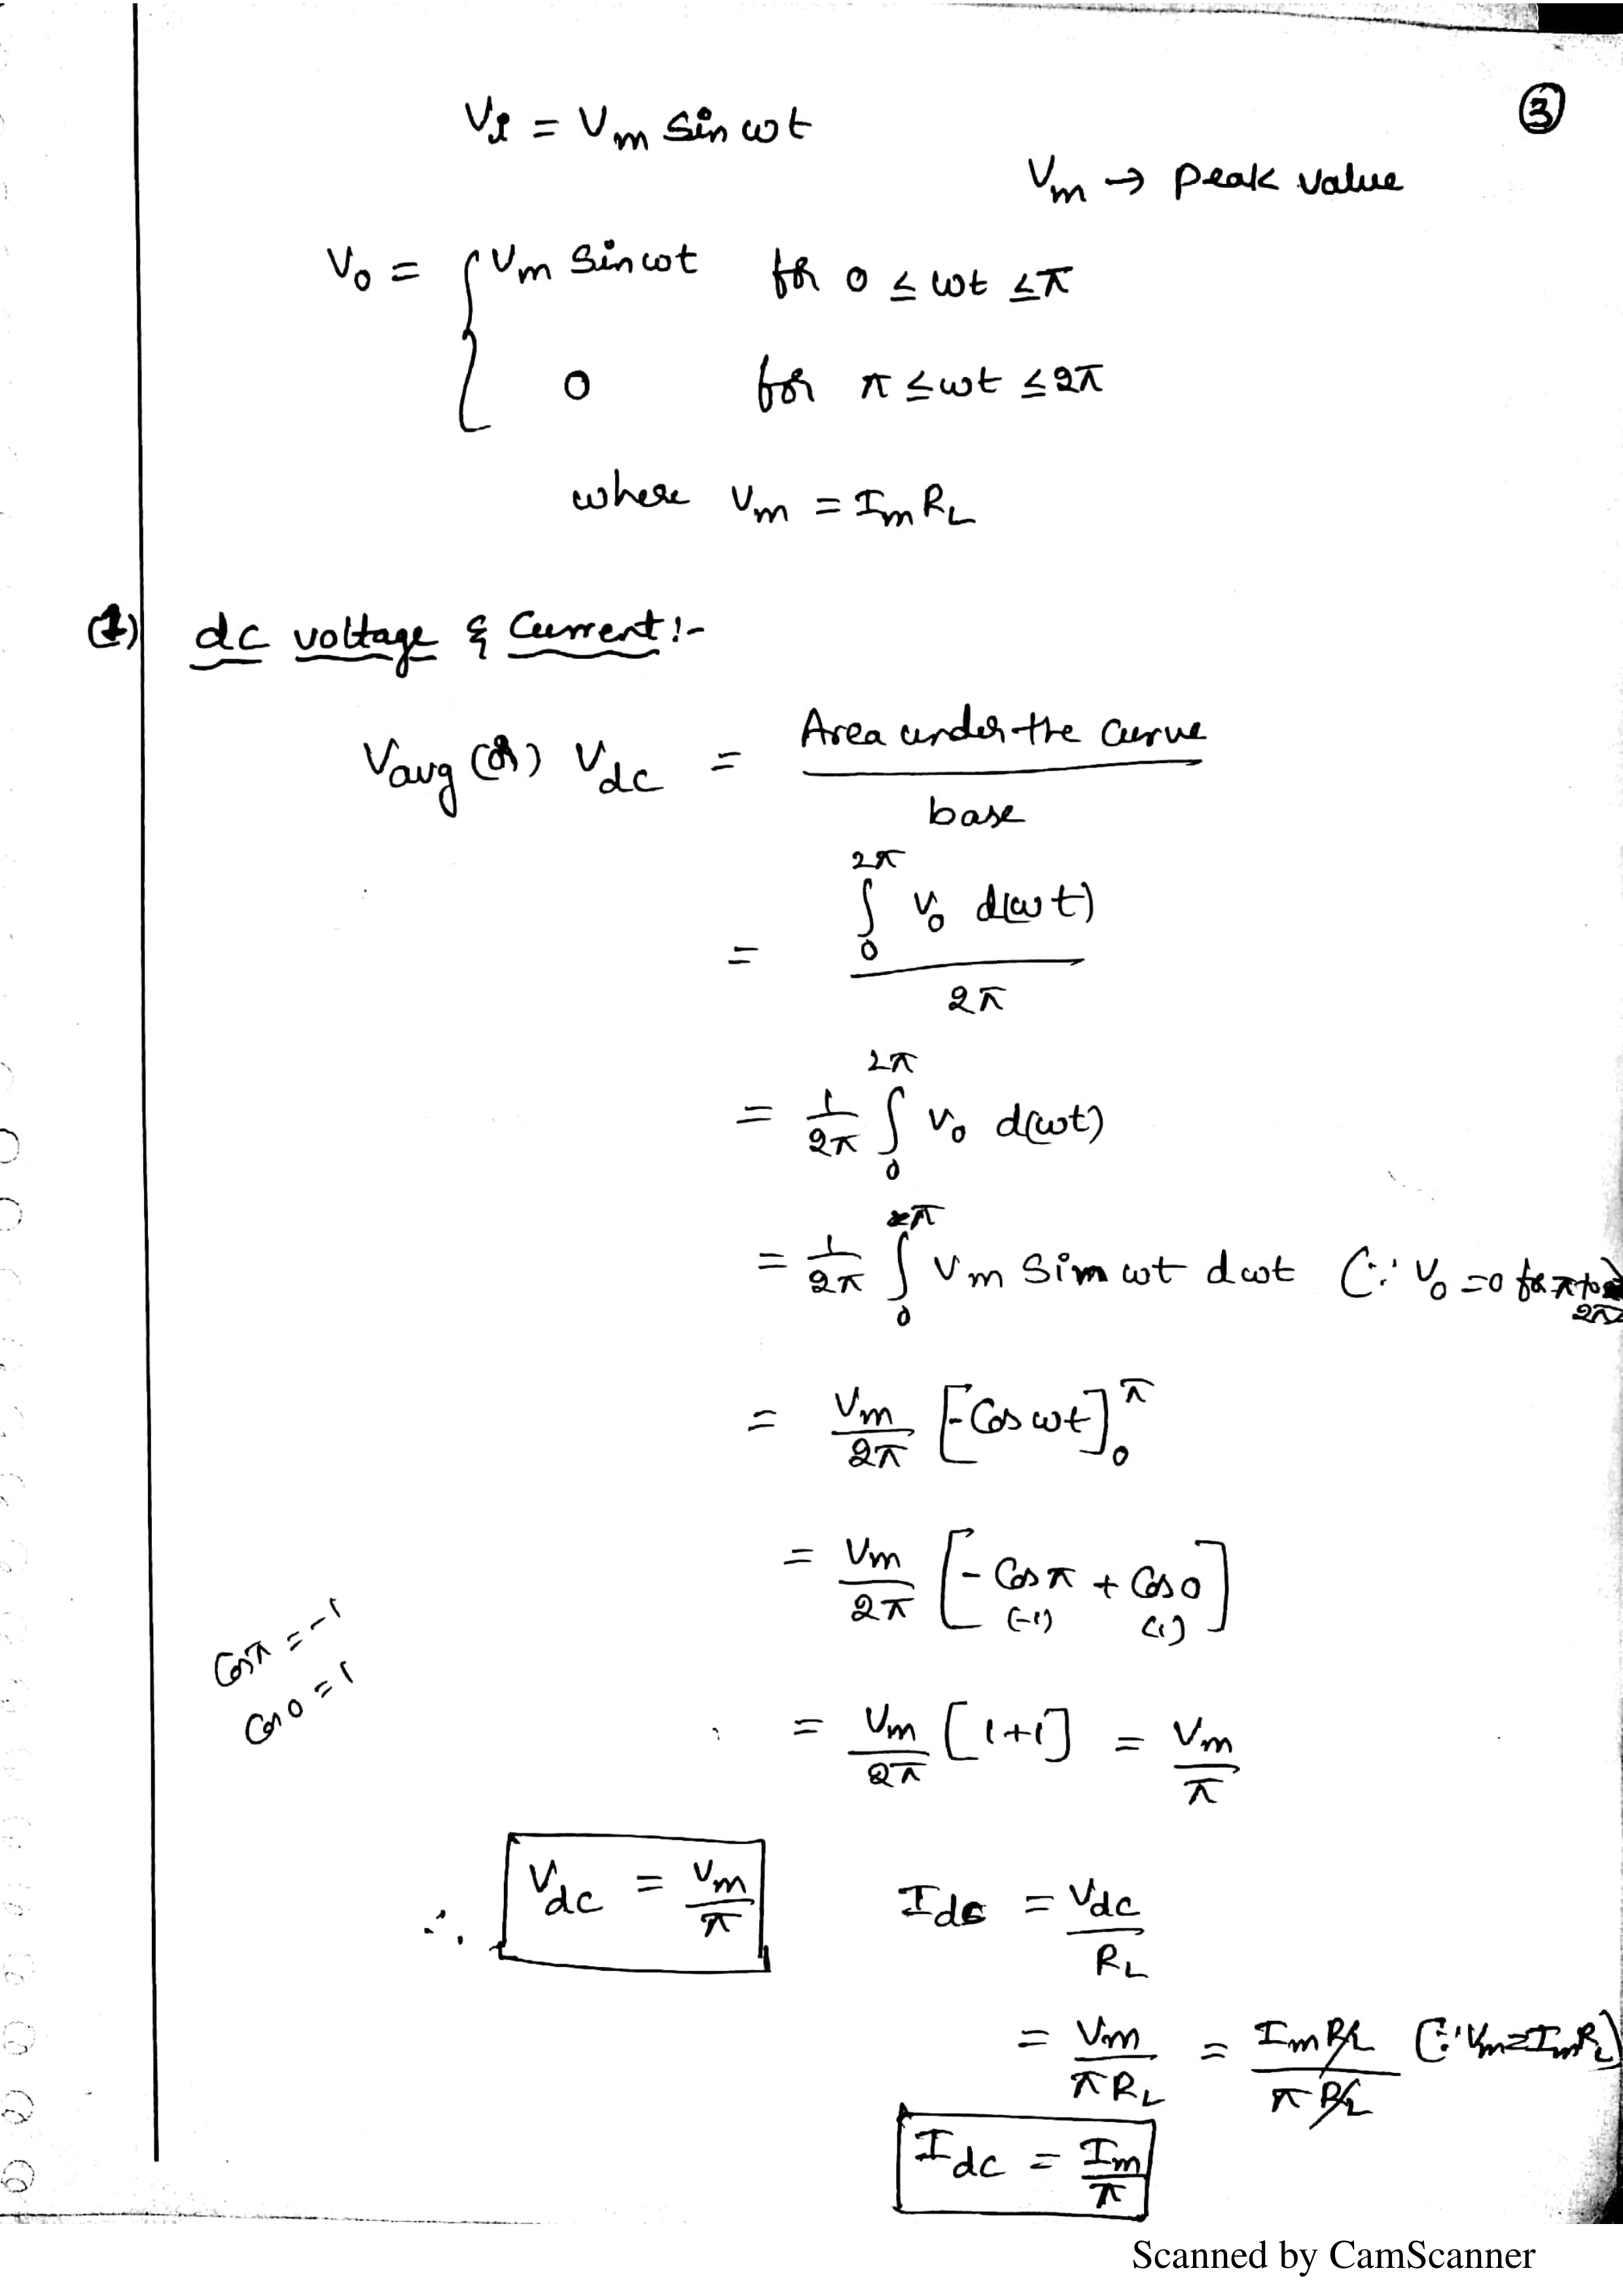 ③
Vi = Vm Sin ωt
Vm → peak value
Vo = { Vm Sin ωt for 0 ≤ ωt ≤ π
0 for π ≤ ωt ≤ 2π
where Vm = Im RL
(1) dc voltage & Current:-
Vavg (or) Vdc = Area under the curve / base
= ∫₀^2π Vo d(ωt) / 2π
= 1/2π ∫₀^2π Vo d(ωt)
= 1/2π ∫₀^π Vm Sin ωt dωt (∵ Vo = 0 for π to 2π)
= Vm/2π [-Cos ωt]₀^π
= Vm/2π [- Cos π + Cos 0]
(-1) (1)
Cos π = -1
Cos 0 = 1
= Vm/2π [1+1] = Vm/π
∴ Vdc = Vm/π Idc = Vdc/RL
= Vm/πRL = Im RL/π RL (∵ Vm = Im RL)
Idc = Im/π
Scanned by CamScanner